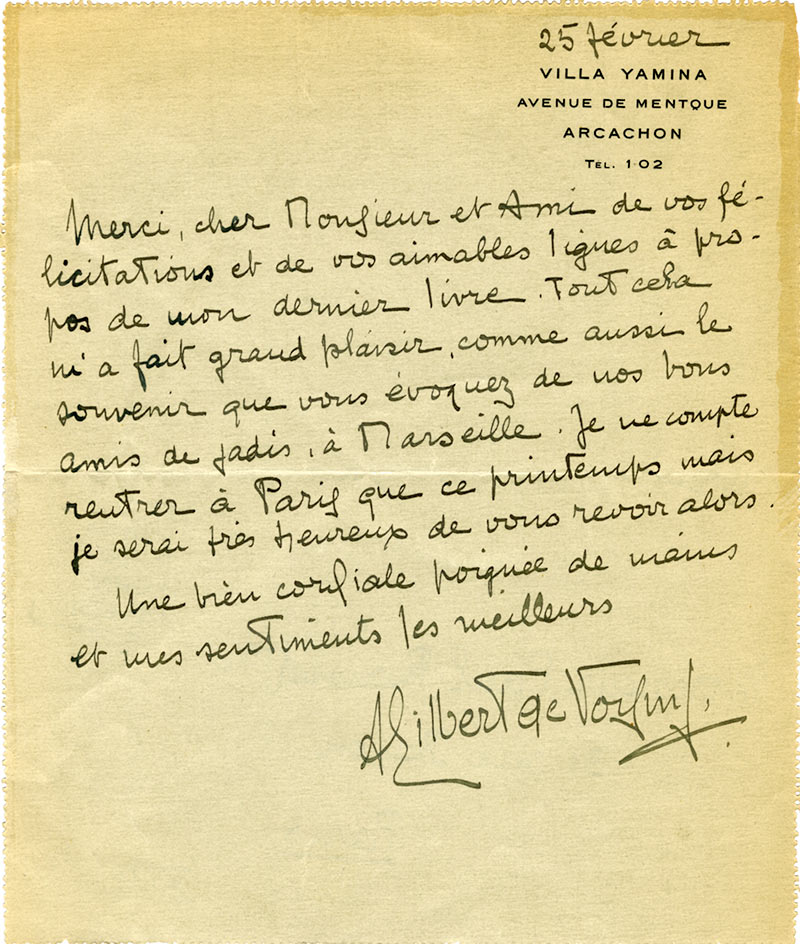 25 février
VILLA YAMINA
AVENUE DE MENTQUE
ARCACHON
TEL. 1·02
Merci, cher Monsieur et Ami de vos fé-
licitations et de vos aimables lignes à pro-
pos de mon dernier livre. Tout cela
m'a fait grand plaisir, comme aussi le
souvenir que vous évoquez de nos bons
amis de jadis, à Marseille. Je ne compte
rentrer à Paris que ce printemps mais
je serai très heureux de vous revoir alors.
Une bien cordiale poignée de mains
et mes sentiments les meilleurs
A Gilbert de Voisins.